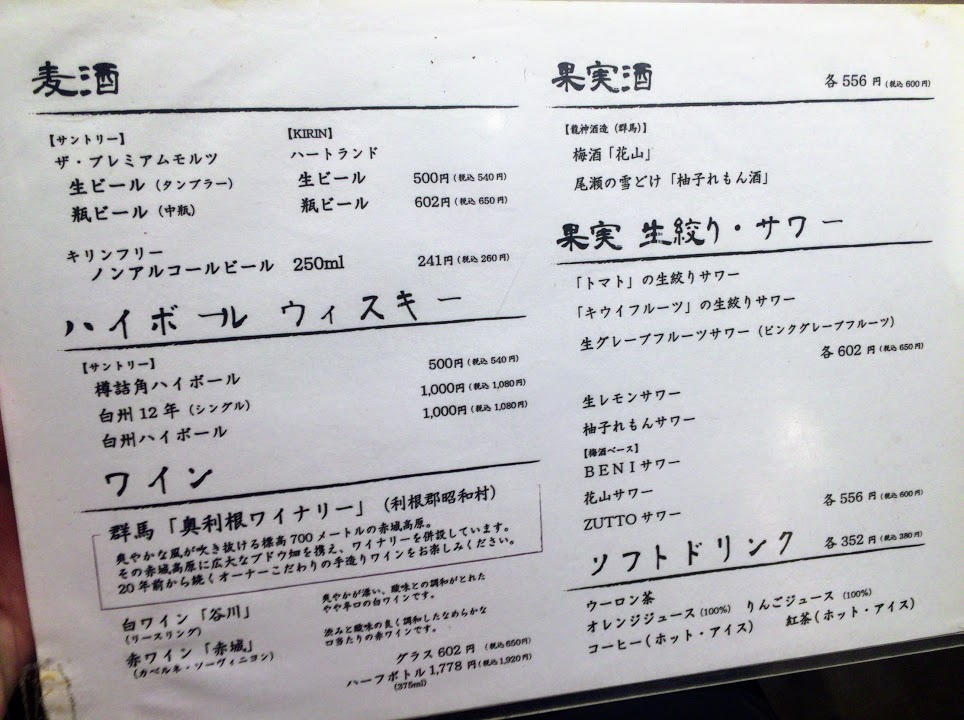 麦酒
【サントリー】
ザ・プレミアムモルツ
生ビール（タンブラー）
瓶ビール（中瓶）
【KIRIN】
ハートランド
生ビール 500円（税込 540円）
瓶ビール 602円（税込 650円）
キリンフリー
ノンアルコールビール 250ml 241円（税込 260円）
ハイボール ウィスキー
【サントリー】
樽詰角ハイボール 500円（税込 540円）
白州12年（シングル） 1,000円（税込 1,080円）
白州ハイボール 1,000円（税込 1,080円）
ワイン
群馬「奥利根ワイナリー」（利根郡昭和村）
爽やかな風が吹き抜ける標高700メートルの赤城高原。
その赤城高原に広大なブドウ畑を携え、ワイナリーを併設しています。
20年前から続くオーナーこだわりの手造りワインをお楽しみください。
白ワイン「谷川」
（リースリング）
爽やかが漂い、酸味との調和がとれた
やや辛口の白ワインです。
赤ワイン「赤城」
（カベルネ・ソーヴィニヨン）
渋みと酸味の良く調和したなめらかな
口当たりの赤ワインです。
グラス 602円（税込 650円）
ハーフボトル 1,778円（税込 1,920円）
（375ml）
果実酒 各 556 円（税込 600円）
【龍神酒造（群馬）】
梅酒「花山」
尾瀬の雪どけ「柚子れもん酒」
果実 生絞り・サワー
「トマト」の生絞りサワー
「キウイフルーツ」の生絞りサワー
生グレープフルーツサワー（ピンクグレープフルーツ）
各 602 円（税込 650円）
生レモンサワー
柚子れもんサワー
【梅酒ベース】
BENIサワー
花山サワー
ZUTTOサワー 各 556 円（税込 600円）
ソフトドリンク 各 352 円（税込 380円）
ウーロン茶
オレンジジュース（100%） りんごジュース（100%）
コーヒー（ホット・アイス） 紅茶（ホット・アイス）